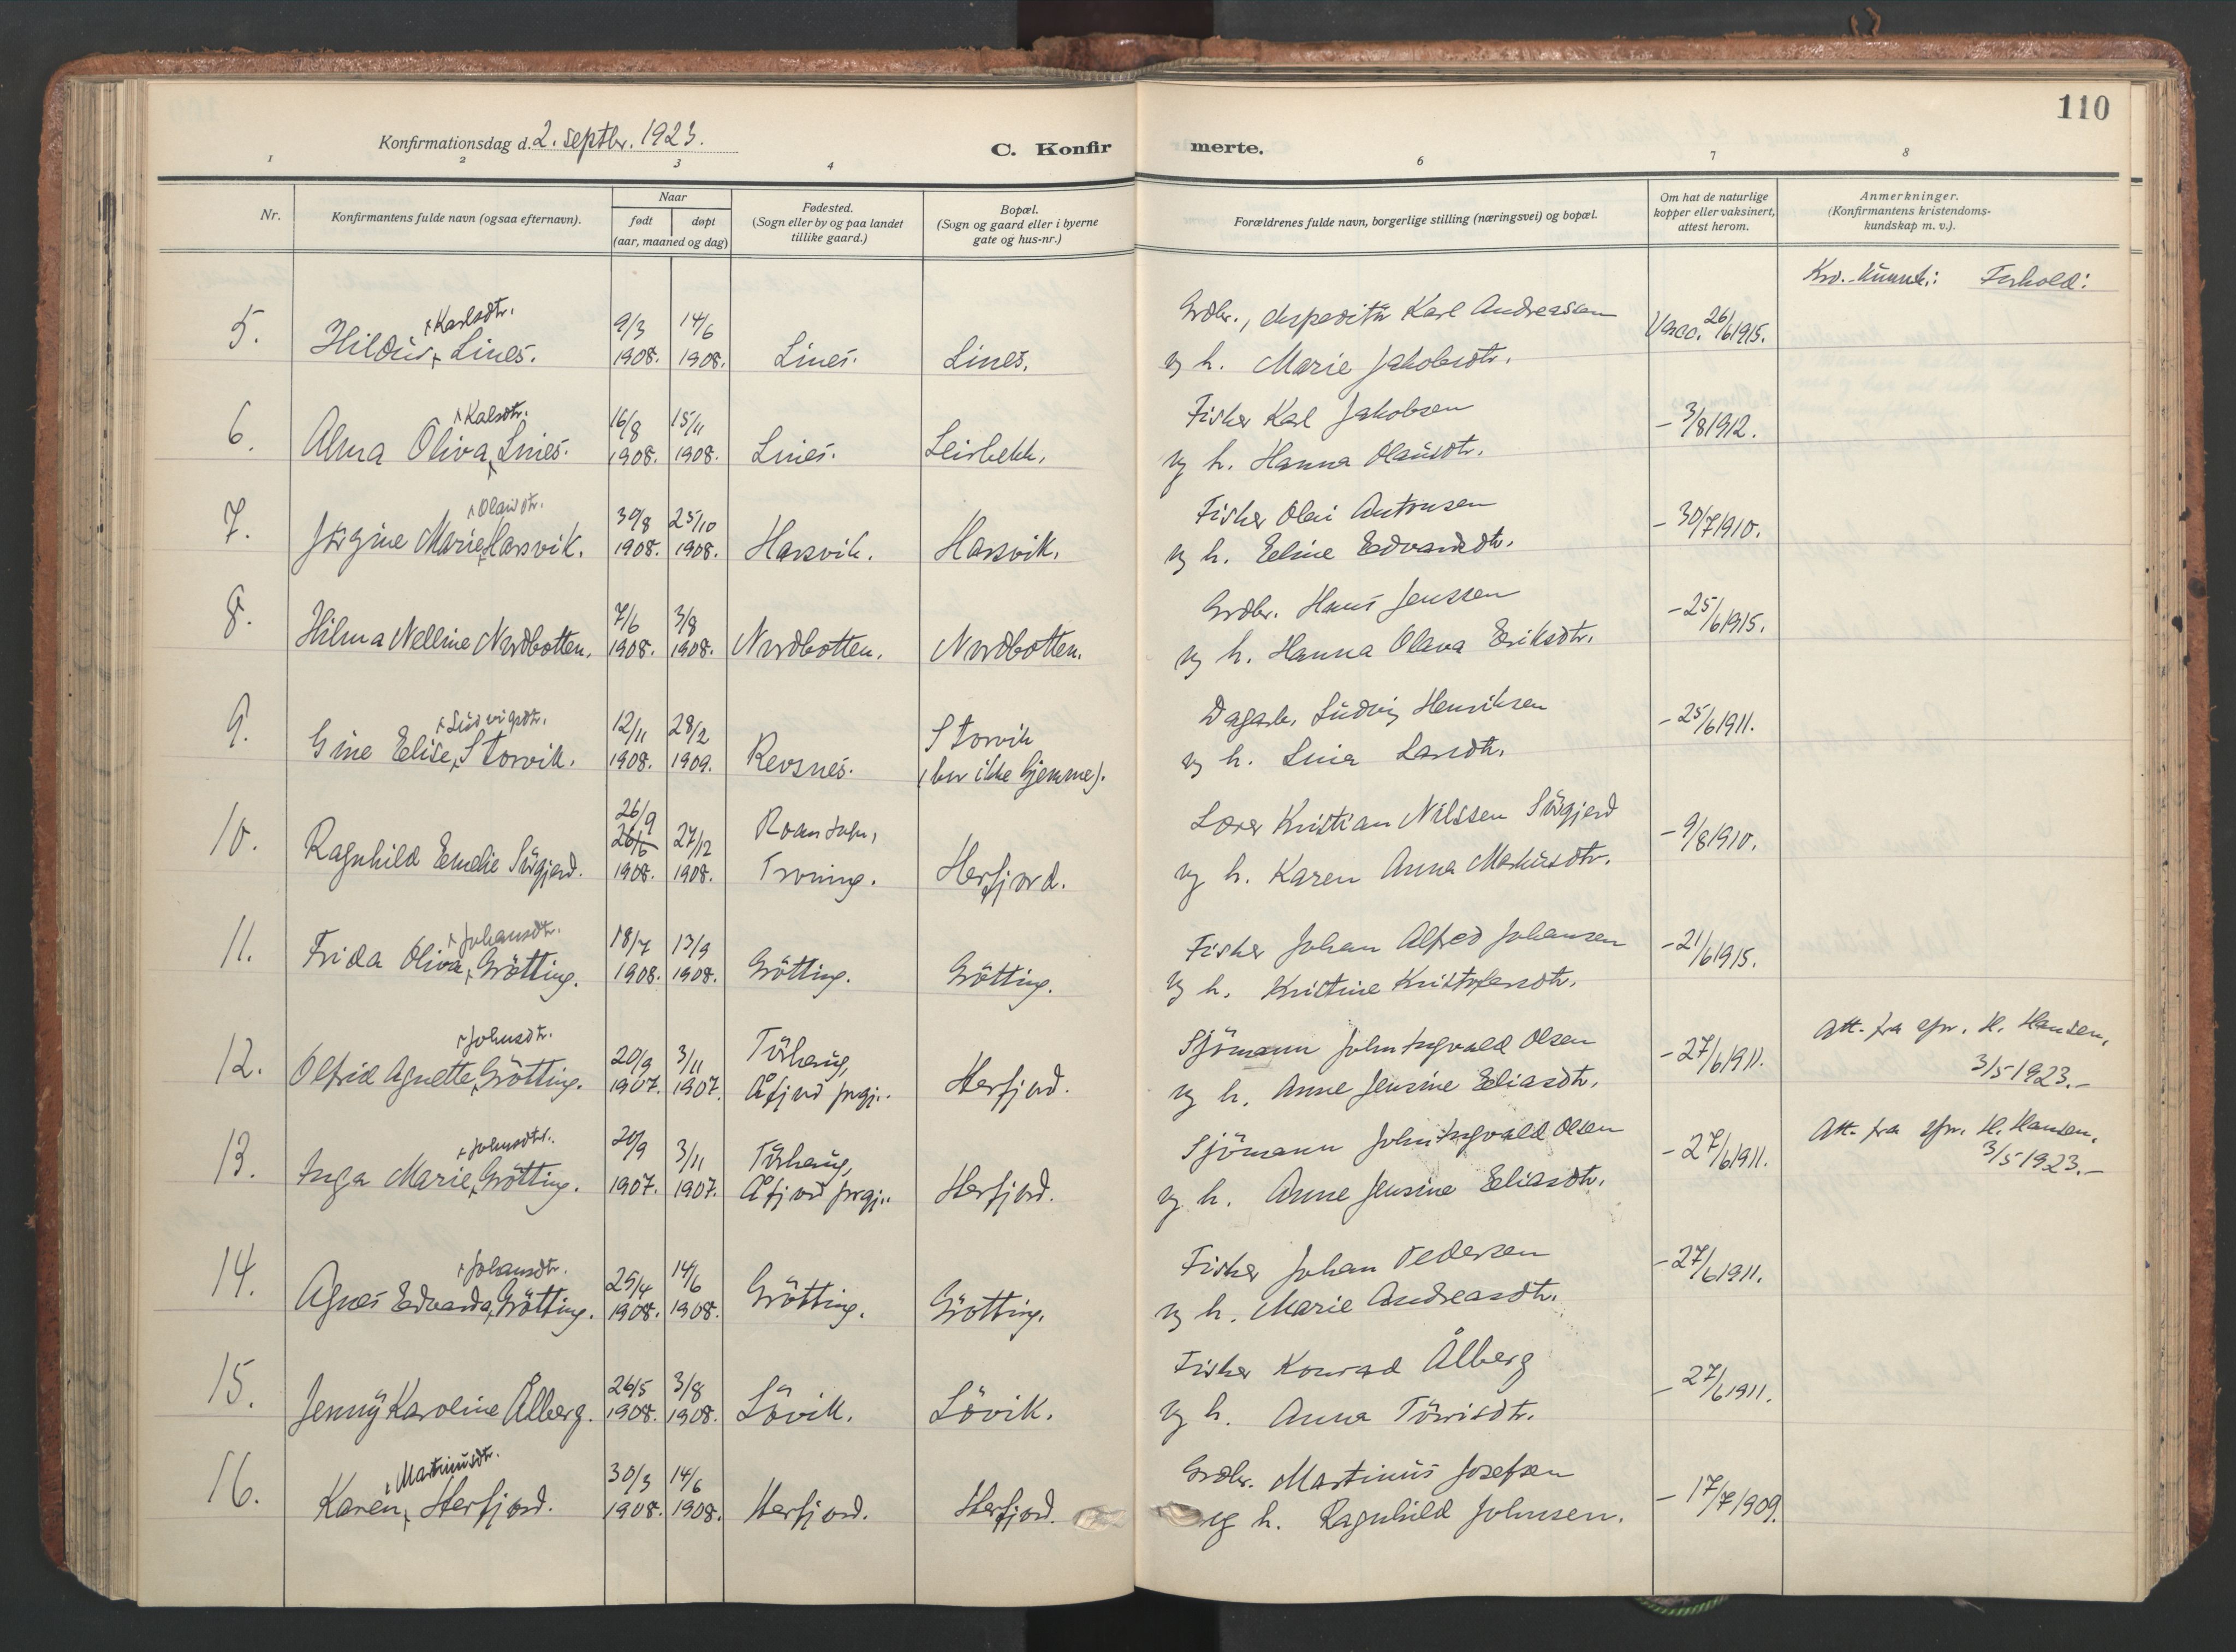 110
Konfirmationsdag d. 2. septbr. 1923.
C. Konfirmerte.
1 2 3 4 6 7 8
Nr.
Konfirmantens fulde navn (ogsaa efternavn).
Naar
født døpt
(aar, maaned og dag)
Fødested.
(Sogn eller by og paa landet
tillike gaard.)
Bopæl.
(Sogn og gaard eller i byerne
gate og hus-nr.)
Forældrenes fulde navn, borgerlige stilling (næringsvei) og bopæl.
Om hat de naturlige
kopper eller vaksinert,
attest herom.
Anmerkninger.
(Konfirmantens kristendoms-
kundskap m. v.).
Forhold:
Karlsdtr. 9/3 14/6 Grdbr., ekspeditør Karl Andreassen Vacc. 26/6 1915.
5. Hildur Lines. 1908. 1908. Lines. Lines. og h. Marie Jakobsdtr.
Kalsdtr. 16/8 15/11 Fisker Karl Jakobsen
6. Alma Oliva Lines. 1908. 1908. Lines. Leirbekk. og h. Hanna Olausdtr. – 3/8 1912.
Olaisdtr. 30/8 25/10 Fisker Olai Antonsen
7. Jørgine Marie Harsvik. 1908. 1908. Harsvik. Harsvik. og h. Eline Edvardsdtr. – 30/7 1910.
7/6 3/8 Grdbr. Hans Jenssen
8. Hilma Nelline Nordbotten. 1908. 1908. Nordbotten. Nordbotten. og h. Hanna Olava Eriksdtr. – 25/6 1915.
Ludvigsdtr. 12/11 28/2 Storvik Dagarb. Ludvig Henriksen
9. Gine Elise Storvik. 1908. 1909. Revsnes. (bor ikke hjemme). og h. Lina Larsdtr. – 25/6 1911.
26/9
26/6 27/12 Roan sogn, Lærer Kristian Nilssen Sørgjerd
10. Ragnhild Emelie Sørgjerd. 1908. 1908. Terning. Herfjord. og h. Karen Anna Markusdtr. – 9/8 1910.
Johansdtr. 18/7 13/9 Fisker Johan Alfred Johansen
11. Frida Oliva Grötting. 1908. 1908. Grötting. Grötting. og h. Kristine Kristofersdtr. – 21/6 1915.
Johnsdtr. 20/9 3/11 Törhaug, Sjömann John Ingvald Olsen Att. fra spr. H. Hansen,
12. Olfrid Agnette Grötting. 1907. 1907. Åfjord prgj. Herfjord. og h. Anne Jensine Eliasdtr. – 27/6 1911. 3/5 1923.–
Johnsdtr. 20/9 3/11 Törhaug, Sjömann John Ingvald Olsen Att. fra spr. H. Hansen,
13. Inga Marie Grötting. 1907. 1907. Åfjord prgj. Herfjord. og h. Anne Jensine Eliasdtr. – 27/6 1911. 3/5 1923.–
Johansdtr. 25/4 14/6 Fisker Johan Pedersen
14. Agnes Edvarda Grötting. 1908. 1908. Grötting. Grötting. og h. Marie Andreasdtr. – 27/6 1911.
26/5 3/8 Fisker Konrad Ålberg
15. Jenny Karoline Ålberg. 1908. 1908. Lövik. Lövik. og h. Anna Törrisdtr. – 27/6 1911.
Martinusdtr. 30/3 14/6 Grdbr. Martinus Josefsen
16. Karen Herfjord. 1908. 1908. Herfjord. Herfjord. og h. Ragnhild Johnsen. – 17/7 1909.